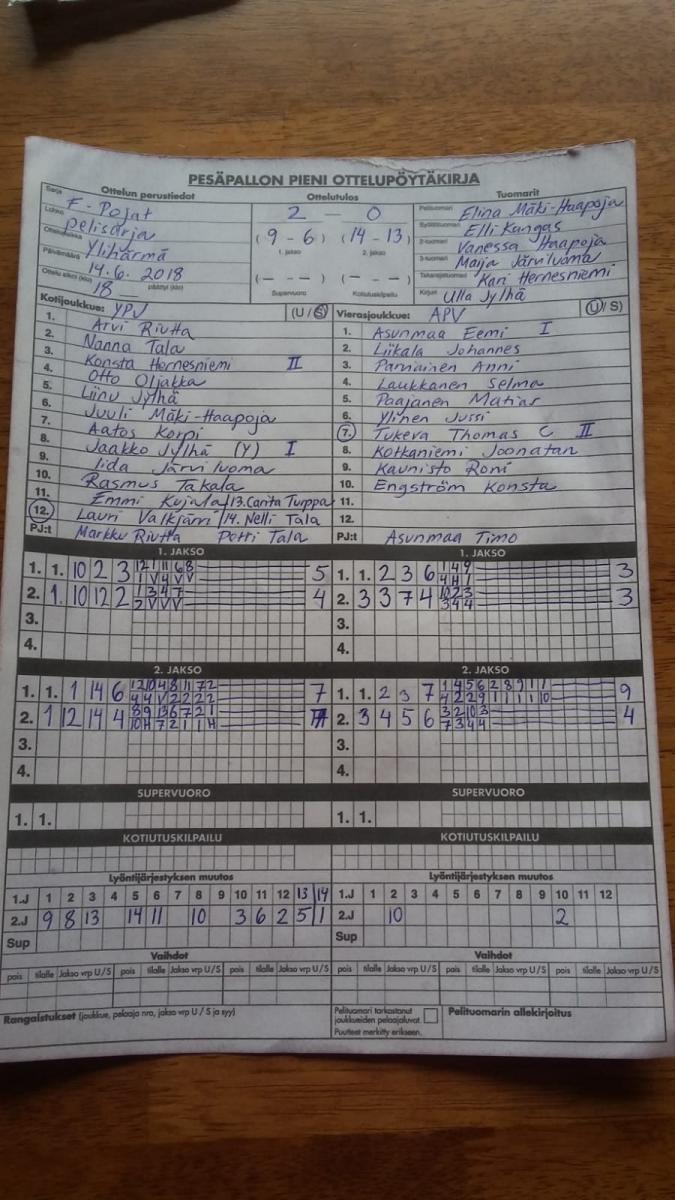 PESÄPALLON PIENI OTTELUPÖYTÄKIRJA
Ottelun perustiedot Ottelutulos Tuomarit
Sarja F-Pojat
Lohko Pelisarja
Ottelupaikka Ylihärmä
Päivämäärä 14.6. 2018
Ottelu alkoi (klo) 18 päättyi (klo)
2 — 0
(9 - 6) (14 - 13)
1. jakso 2. jakso
(— - —) (— - —)
Supervuoro Kotiutuskilpailu
Pelituomari Elina Mäki-Haapoja
Syöttötuomari Elli Kangas
2-tuomari Vanessa Haapoja
3-tuomari Maija Järviluoma
Takarajatuomari Kari Hernesniemi
Kirjuri Ulla Jylhä
Kotijoukkue: YPV (U/S)
1. Arvi Riutta
2. Nanna Tala
3. Konsta Hernesniemi II
4. Otto Oljakka
5. Liinu Jylhä
6. Juuli Mäki-Haapoja
7. Aatos Korpi
8. Jaakko Jylhä (Y) I
9. Iida Järviluoma
10. Rasmus Takala
11. Emmi Kujala / 13. Carita Turppa
12. Lauri Valkjärvi / 14. Nelli Tala
PJ:t Markku Riutta Petri Tala
Vierasjoukkue: APV (U/S)
1. Asunmaa Eemi I
2. Liikala Johannes
3. Parviainen Anni
4. Laukkanen Selma
5. Paajanen Matias
6. Ylinen Jussi
7. Tukeva Thomas C II
8. Kotkaniemi Joonatan
9. Kaunisto Roni
10. Engström Konsta
11.
12.
PJ:t Asunmaa Timo
1. JAKSO 1. JAKSO
1. 1. 10 2 3 12 1 11 6 8 5 1. 1. 2 3 6 1 4 9 3
1 V 4 V V 4 H 1
2. 1. 10 12 2 1 3 4 7 4 2. 3 3 7 4 10 2 3 3
2 V V V 3 4 4
3. 3.
4. 4.
2. JAKSO 2. JAKSO
1. 1. 1 14 6 12 10 4 8 11 7 2 7 1. 1. 2 3 7 1 4 5 6 2 8 9 1 1 9
4 4 V 2 2 2 2 4 2 2 9 1 1 1 1 10
2. 1 12 14 4 8 9 13 6 7 2 1 7 2. 3 4 5 6 3 2 10 3 4
10 H 7 2 1 1 H 7 3 4 4
3. 3.
4. 4.
SUPERVUORO SUPERVUORO
1. 1. 1. 1.
KOTIUTUSKILPAILU KOTIUTUSKILPAILU
Lyöntijärjestyksen muutos Lyöntijärjestyksen muutos
1.J 1 2 3 4 5 6 7 8 9 10 11 12 13 14 1.J 1 2 3 4 5 6 7 8 9 10 11 12
2.J 9 8 13 14 11 10 3 6 2 5 1 2.J 10 2
Sup Sup
Vaihdot Vaihdot
pois tilalle Jakso vrp U/S pois tilalle Jakso vrp U/S pois tilalle Jakso vrp U/S pois tilalle Jakso vrp U/S pois tilalle Jakso vrp U/S pois tilalle Jakso vrp U/S
Rangaistukset (joukkue, pelaaja nro, jakso vrp U / S ja syy)
Pelituomari tarkastanut
joukkueiden pelaajaluvat.
Puutteet merkitty erikseen.
Pelituomarin allekirjoitus